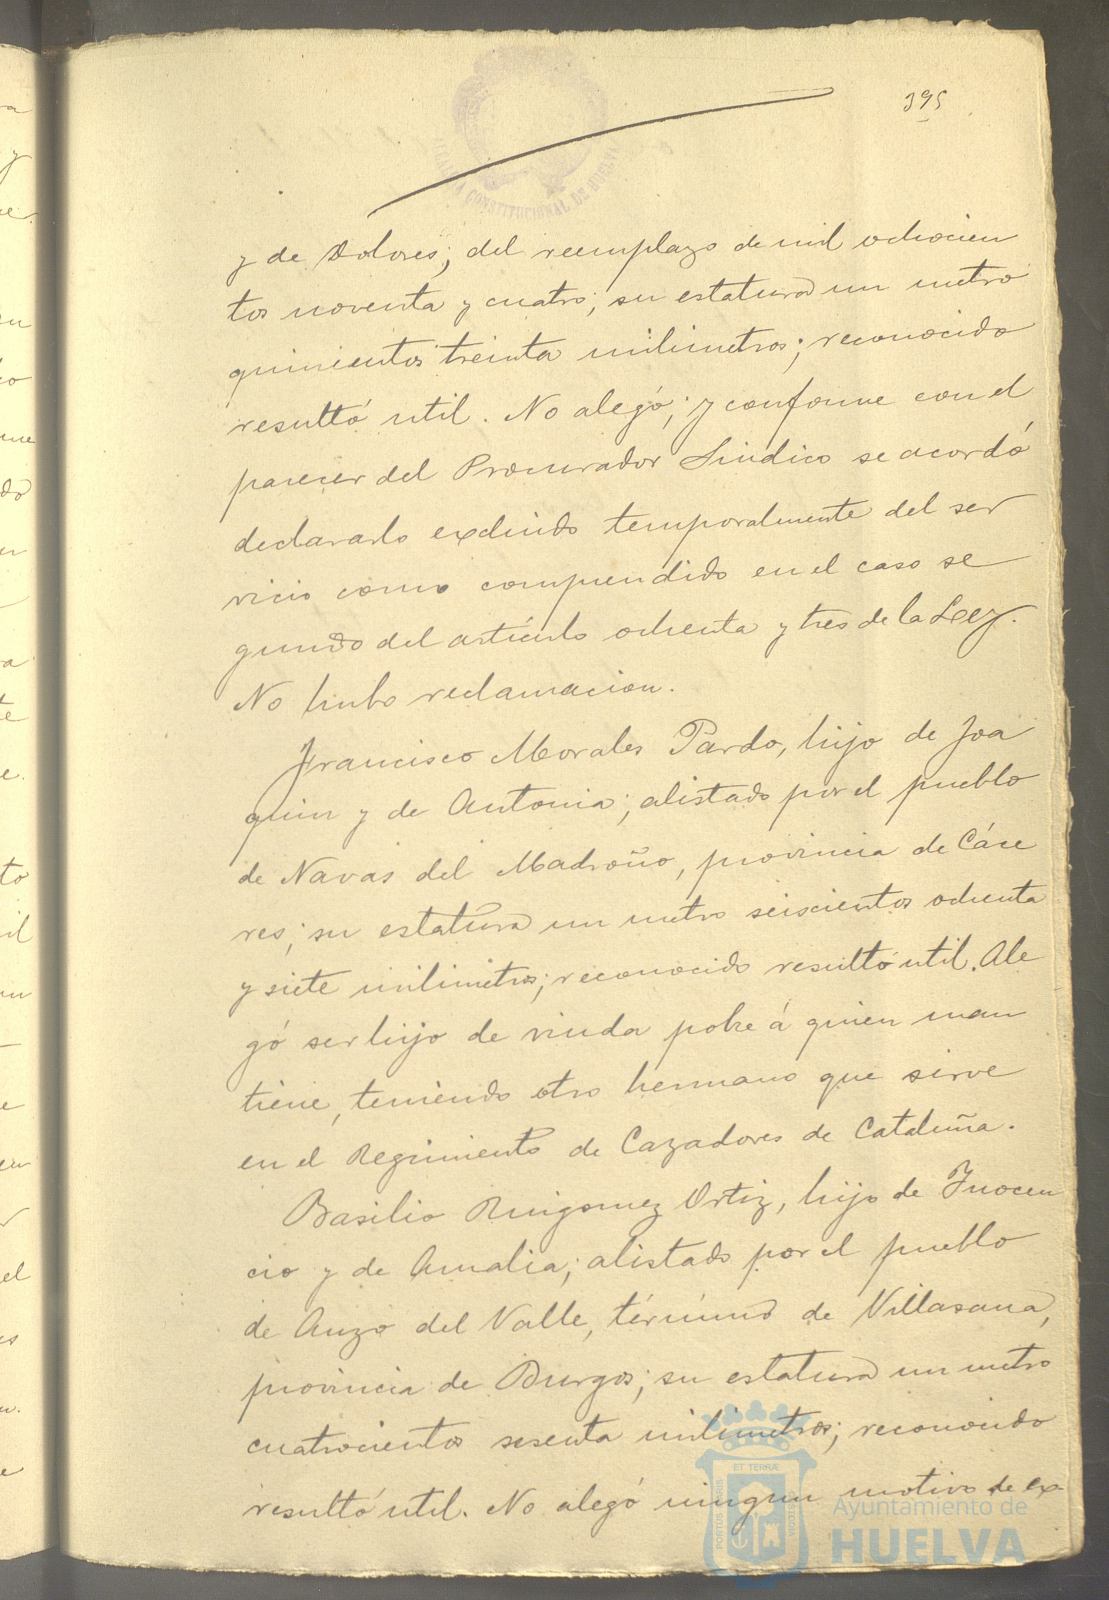 395
CONSTITUCIONAL DE HUELVA
y de Dolores; del reemplazo de mil ochocien
tos noventa y cuatro; su estatura un metro
quinientos treinta milimetros; reconocido
resultó util. No alegó; y conforme con el
parecer del Procurador Sindico se acordó
declararlo excluido temporalmente del ser
vicio como comprendido en el caso se
gundo del artículo ochenta y tres de la Ley.
No hubo reclamacion.
Francisco Morales Pardo, hijo de Joa
quin y de Antonia; alistado por el pueblo
de Navas del Madroño, provincia de Cáce
res; su estatura un metro seiscientos ochenta
y siete milimetros; reconocido resultó util. Ale
gó ser hijo de viuda pobre á quien man
tiene, teniendo otro hermano que sirve
en el Regimiento de Cazadores de Cataluña.
Basilio Ruigomez Ortiz, hijo de Inocen
cio y de Amalia; alistado por el pueblo
de Anzo del Valle, término de Villasana,
provincia de Burgos; su estatura un metro
cuatrocientos sesenta milimetros; reconocido
resultó util. No alegó ningun motivo de ex-
PORTUS MARIS ET TERRÆ CUSTODIA
Ayuntamiento de
HUELVA